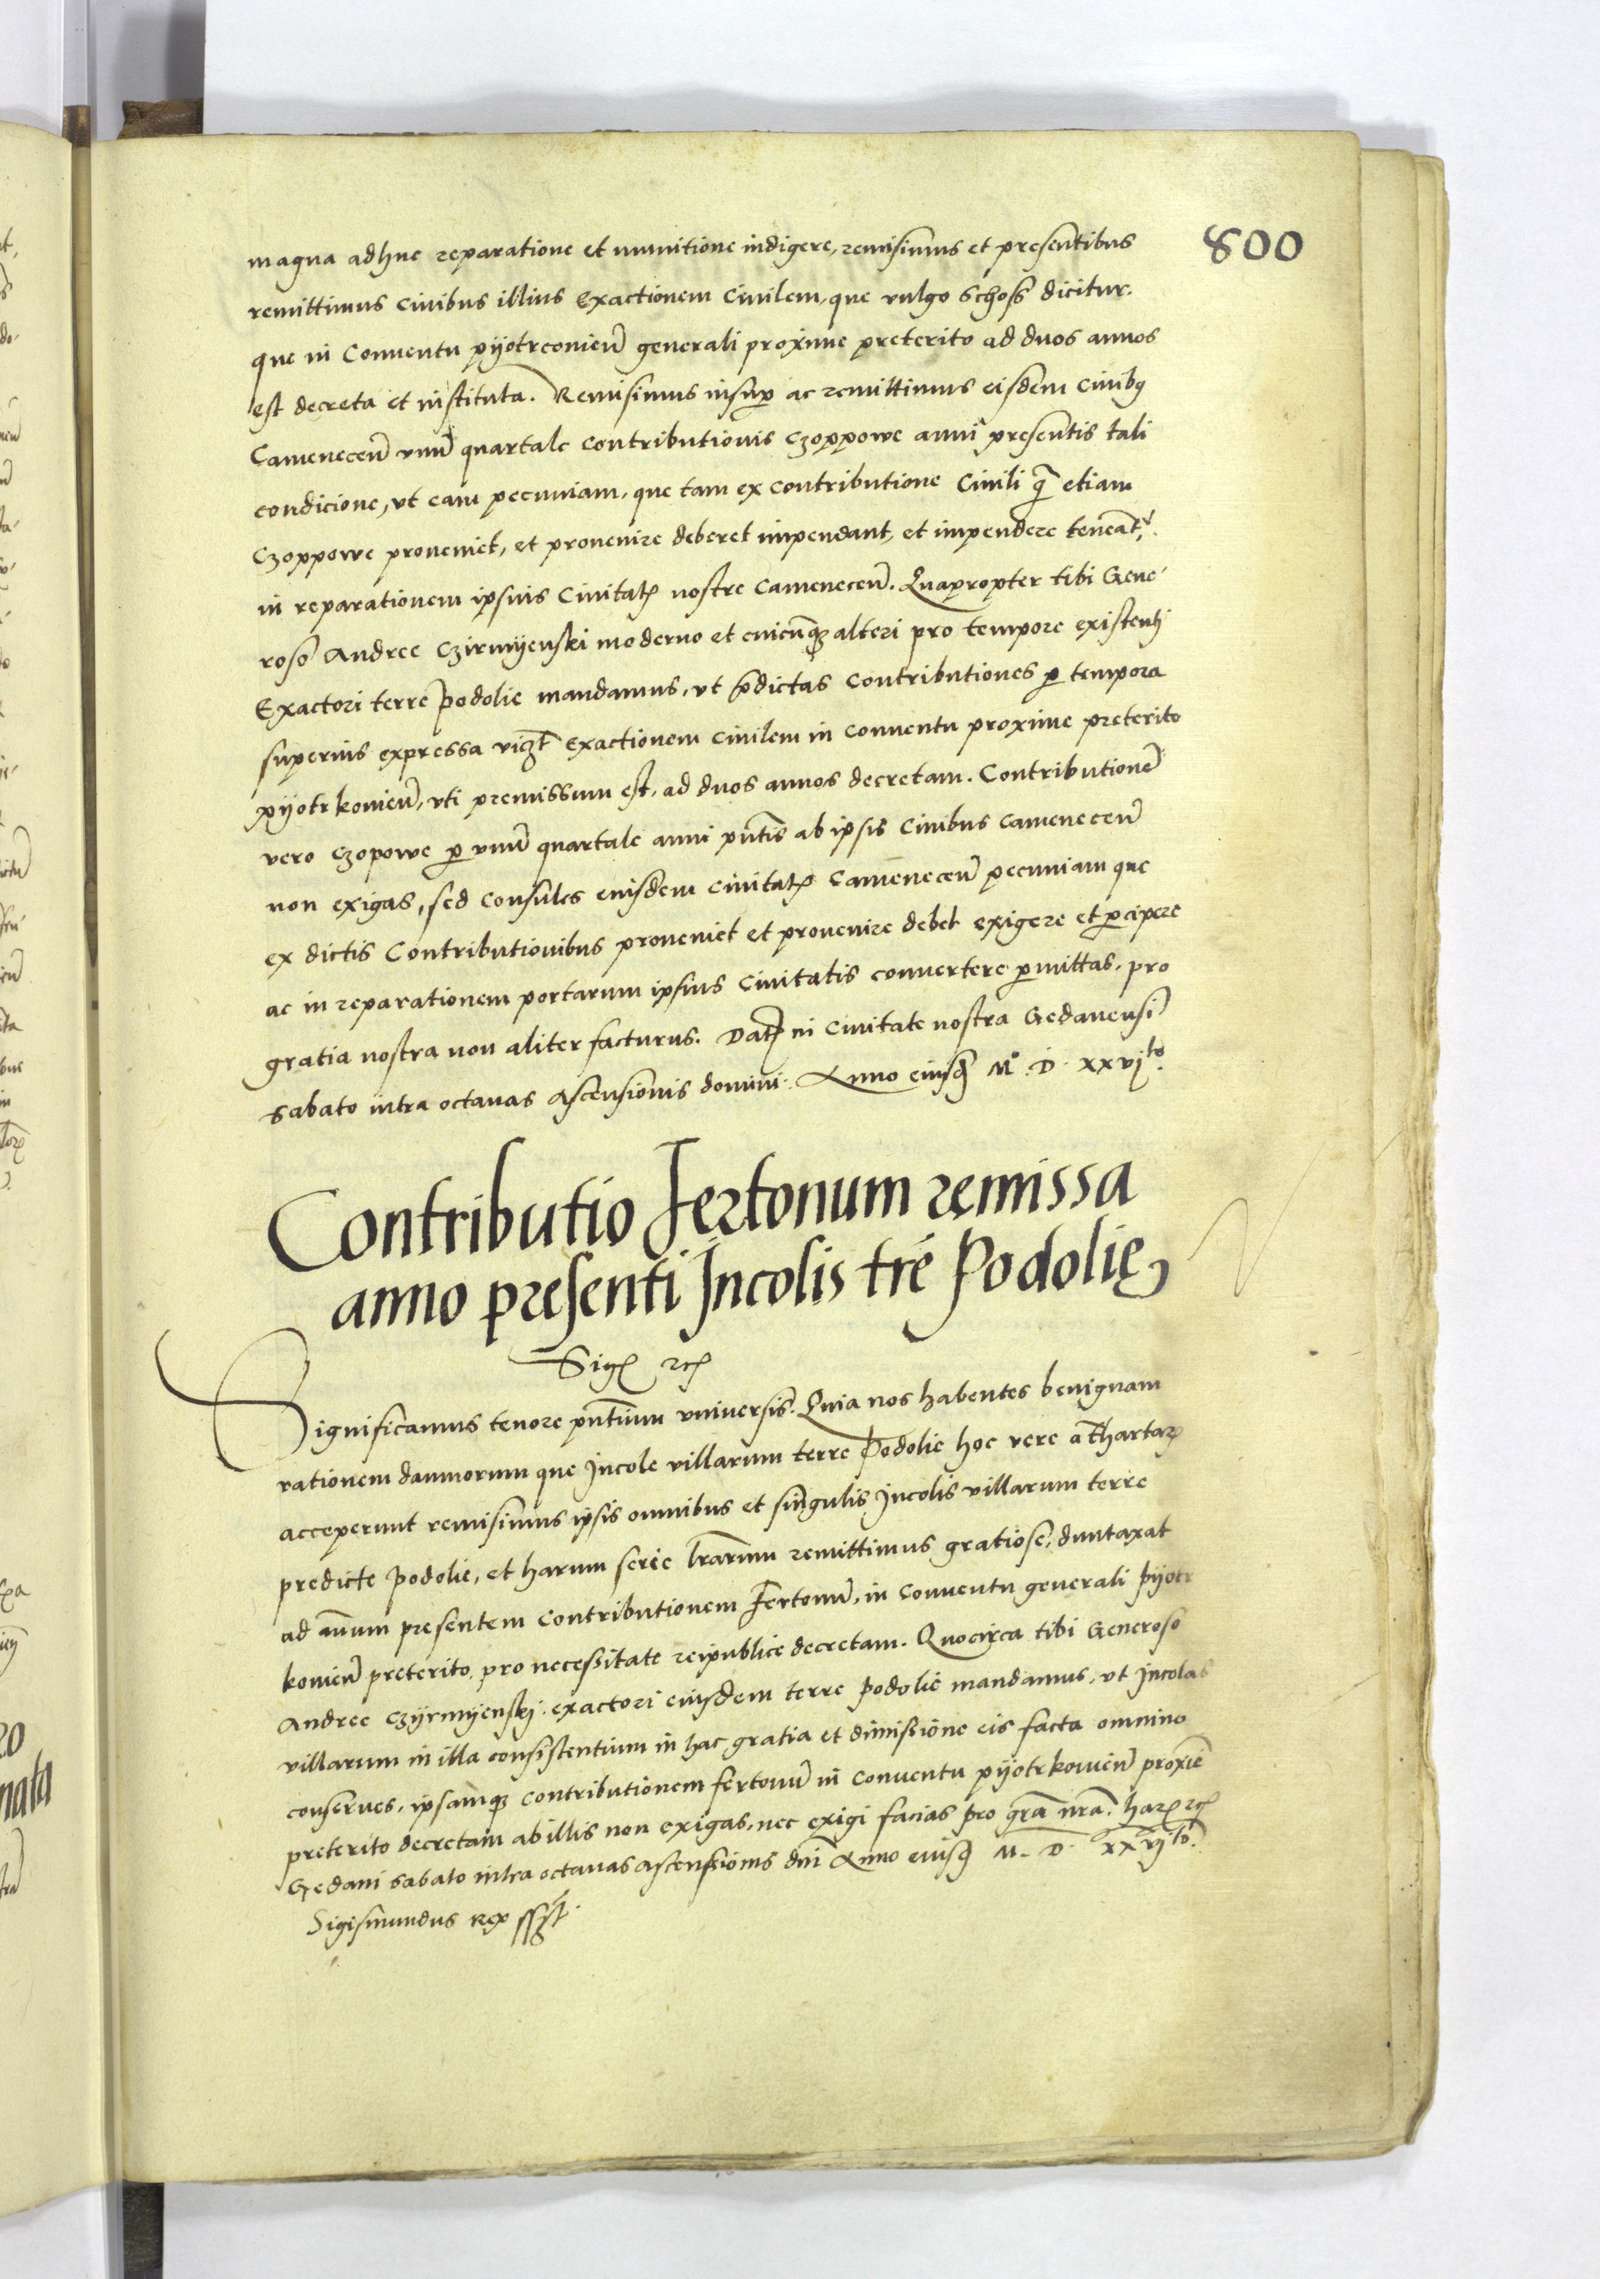 800
magna adhuc reparatione et munitione indigere, remisimus et presentibus
remittimus Ciuibus illius Exactionem Ciuilem, que vulgo schoss dicitur.
que in Conuentu pyotrconien̄ generali proxime preterito ad duos annos
est decreta et instituta. Remisimus insup̱ ac remittimus eisdem Ciuibꝫ
Camenecen̄ vnū quartale contributionis Czoppowe anni presentis tali
condicione, vt eam pecuniam, que tam ex contributione Ciuili q̄ etiam
Czoppowe proueniet, et prouenire deberet impendant, et impendere teneāt͛.
in reparationem ipsius Ciuitatꝭ nostre Camenecen̄. Quapropter tibi Gene-
roso Andree Czirmyenski moderno et cuicūqꝫ alteri pro tempore existenti
Exactori terre Podolie mandamus, vt p̄dictas Contributiones ꝑ tempora
superius expressa vicꝫt Exactionem Ciuilem in conuentu proxime preterito
pyotrkonien̄, vti premissum est, ad duos annos decretam. Contributionē
vero Czopowe ꝑ vnū quartale anni pn̄tis ab ipsis Ciuibus Camenecen̄
non exigas, sed Consules eiusdem Ciuitatꝭ Camenecen̄ pecuniam que
ex dictis Contributionibus proueniet et prouenire debet exigere et ꝑcipere
ac in reparationem portarum ipsius Ciuitatis conuertere ꝑmittas, pro
gratia nostra non aliter facturus. Datꝭ in Ciuitate nostra Gedanensi
Sabato intra octauas Ascensionis domini. Anno eiusd̄ M°. D. xxvjto.
Contributio Fertonum remissa
anno presenti Incolis tr̄e Podolię,
Sigꝭ rꝭ
Significamus tenore pn̄tium vniuersis. Quia nos habentes benignam
rationem damnorum que Incole villarum terre Podolie hoc vere a Thartarꝭ
acceperunt remisimus ipsis omnibus et singulis Incolis villarum terre
predicte Podolie, et harum serie lr̄arum remittimus gratiose, duntaxat
ad annum presentem contributionem Fertonū, in conuentu generali Pyotr
konien̄ preterito, pro necessitate reipublice decretam. Quocirca tibi Generoso
Andree Czyrmyenskj exactori eiusdem terre Podolie mandamus, vt Incolas
villarum in illa consistentium in hac gratia et dimissione eis facta omnino
conserues, ipsamqꝫ contributionem fertonū in conuentu pyotrkouien̄ proxīe
preterito decretam ab illis non exigas, nec exigi facias pro gr̄a nr̄a. harꝭ rꝭ
Gedani sabato intra octauas Ascensionis dn̄i Anno eiusd̄ M. D. xxvjto.
Sigismundus Rex sszt.